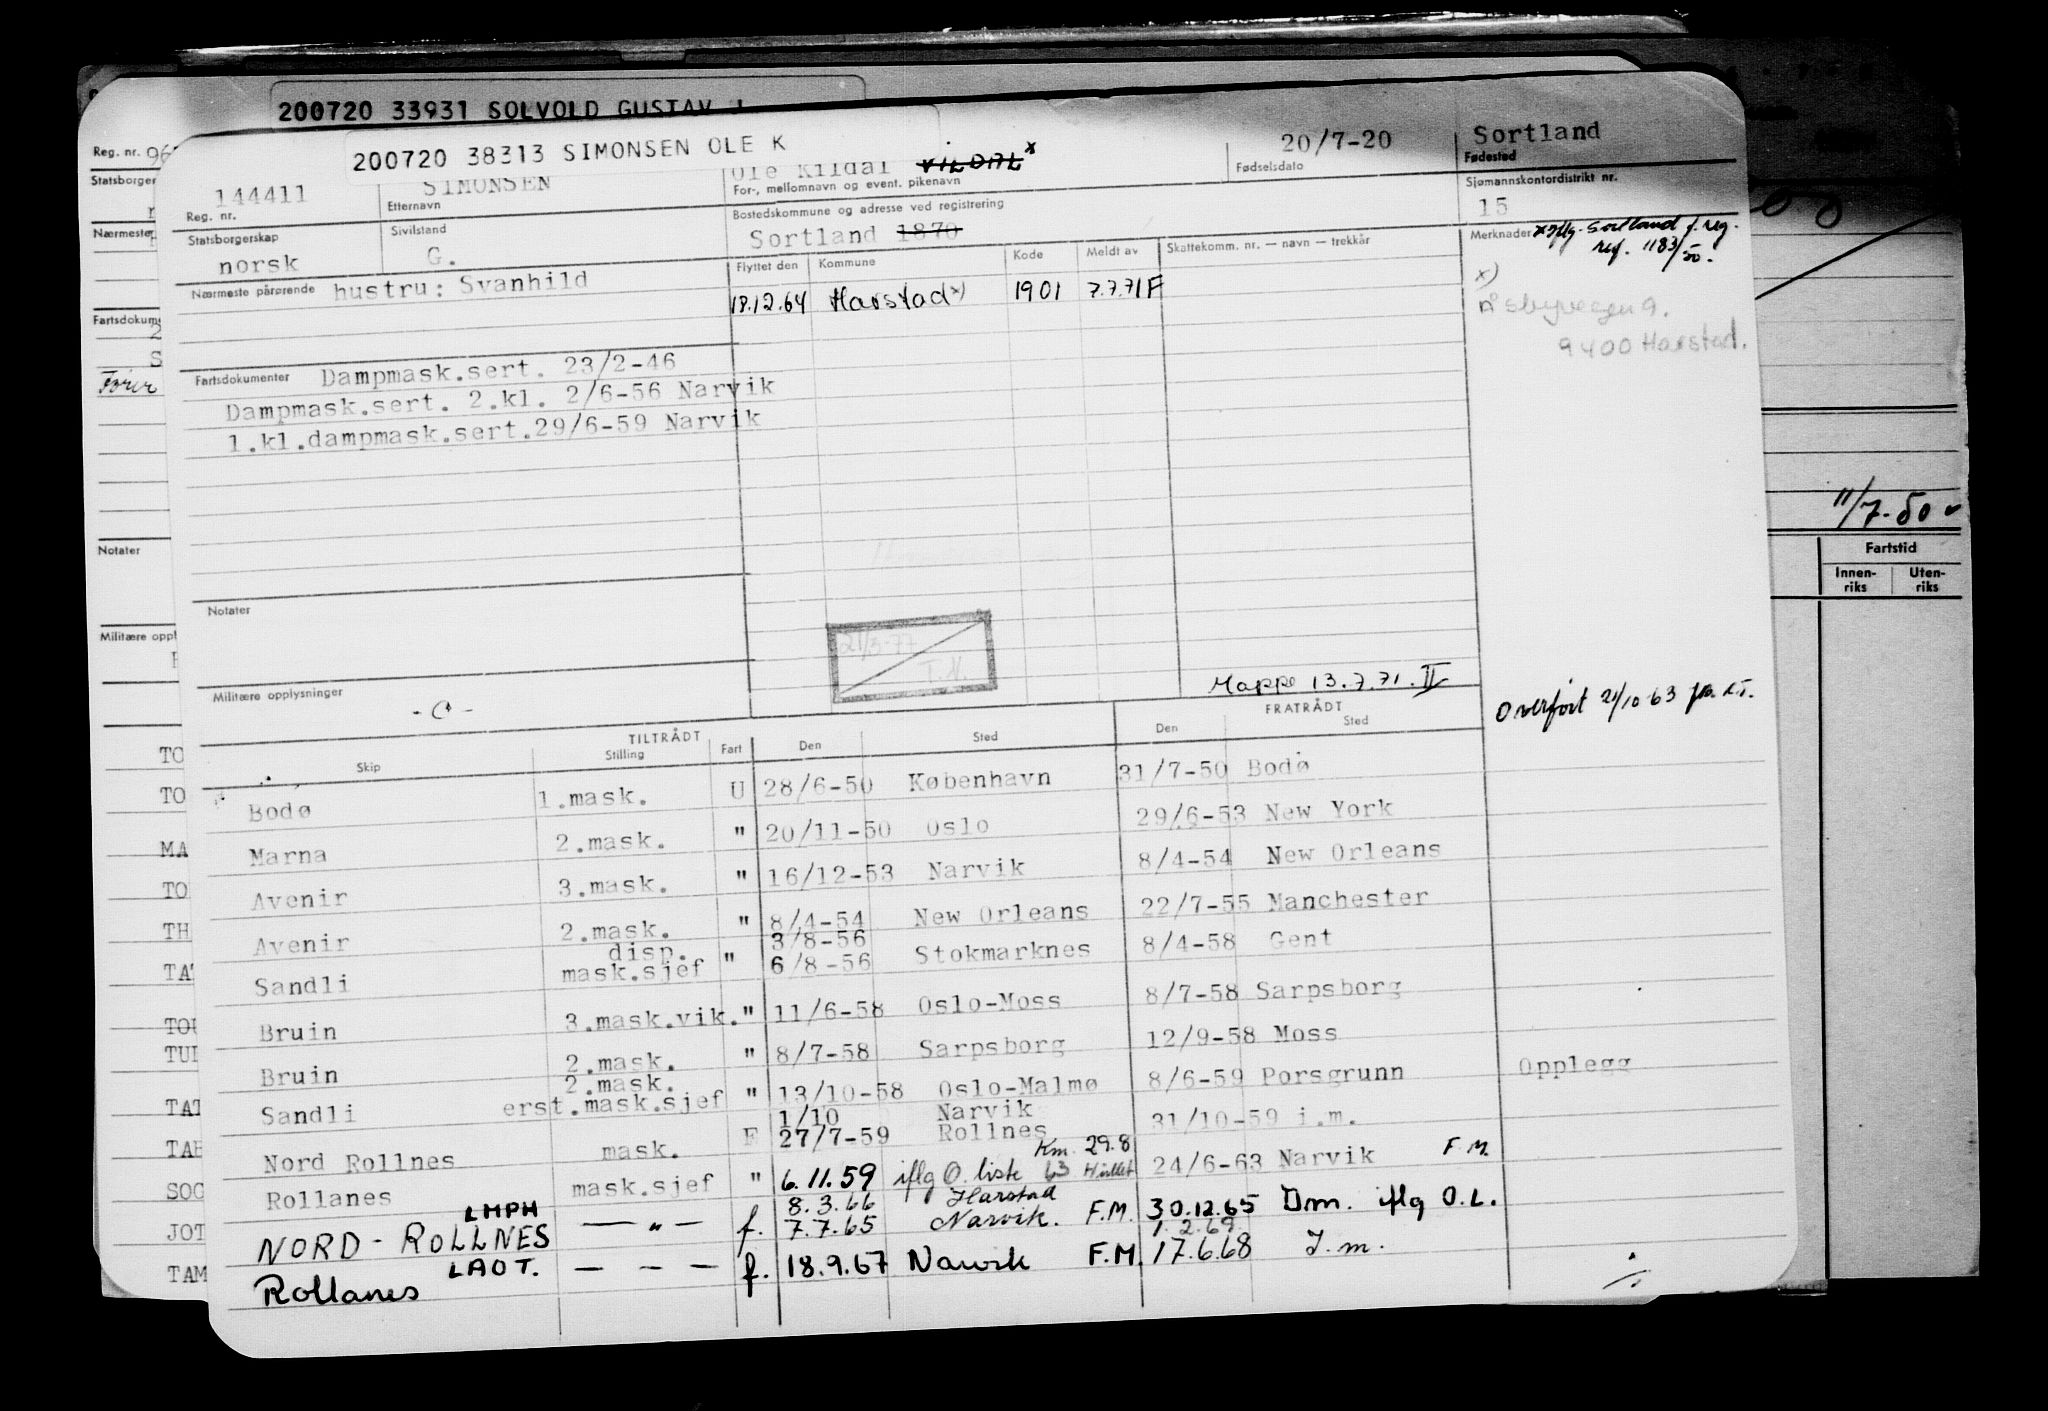 200720 33931 SOLVOLD GUSTAV J
200720 38313 SIMONSEN OLE K
144411 SIMONSEN Ole Kildal VILDAL x 20/7-20 Sortland
Reg. nr. Etternavn For-, mellomnavn og event. pikenavn Fødselsdato Fødested
Statsborgerskap Sivilstand Bostedskommune og adresse ved registrering Sjømannskontordistrikt nr.
norsk G. Sortland 1870 15
Nærmeste pårørende hustru: Svanhild
Flyttet den Kommune Kode Meldt av Skattekomm. nr. — navn — trekkår
18.12.64 Harstad x) 1901 7.7.71F
Merknader x iflg. Sortland f. reg.
ref. 1183/50.
x)
Åsbyveegen 9.
9400 Harstad.
Fartsdokumenter Dampmask.sert. 23/2-46
Dampmask.sert. 2.kl. 2/6-56 Narvik
1.kl.dampmask.sert.29/6-59 Narvik
Notater
21/3-77
T.M.
Militære opplysninger
Mappe 13.7.71. II
Overført 21/10-63
TILTRÅDT FRATRÅDT
Skip Stilling Fart Den Sted Den Sted
Bodø 1.mask. U 28/6-50 København 31/7-50 Bodø
Marna 2.mask. " 20/11-50 Oslo 29/6-53 New York
Avenir 3.mask. " 16/12-53 Narvik 8/4-54 New Orleans
Avenir 2.mask. " 8/4-54 New Orleans 22/7-55 Manchester
disp. 3/8-56
Sandli mask.sjef " 6/8-56 Stokmarknes 8/4-58 Gent
Bruin 3.mask.vik. " 11/6-58 Oslo-Moss 8/7-58 Sarpsborg
Bruin 2.mask. " 8/7-58 Sarpsborg 12/9-58 Moss
2.mask.
Sandli erst.mask.sjef " 13/10-58 Oslo-Malmø 8/6-59 Porsgrunn Opplegg
1/10 Narvik
Nord Rollnes mask. F 27/7-59 Rollnes 31/10-59 i.m.
Km. 29.8
Rollanes mask.sjef " 6.11.59 iflg O. liste 63 24/6-63 Narvik F.M.
LMPH 8.3.66 Harstad
NORD-ROLLNES — " — f. 7.7.65 Narvik. F.M. 30.12.65 Dm. iflg O.L.
LAOT. 1.2.69.
Rollanes — — — f. 18.9.67 Narvik F.M. 17.6.68 I.m.
Reg. nr.
Statsborger
Nærmeste
Fartsdokum
Fører
Notater
Militære oppl
TO
TO
MA
TO
TH
TAT
TOU
TUL
TAT
TAB
SOC
JOT
TAM
11/7-50
Fartstid
Innen-
riks Uten-
riks